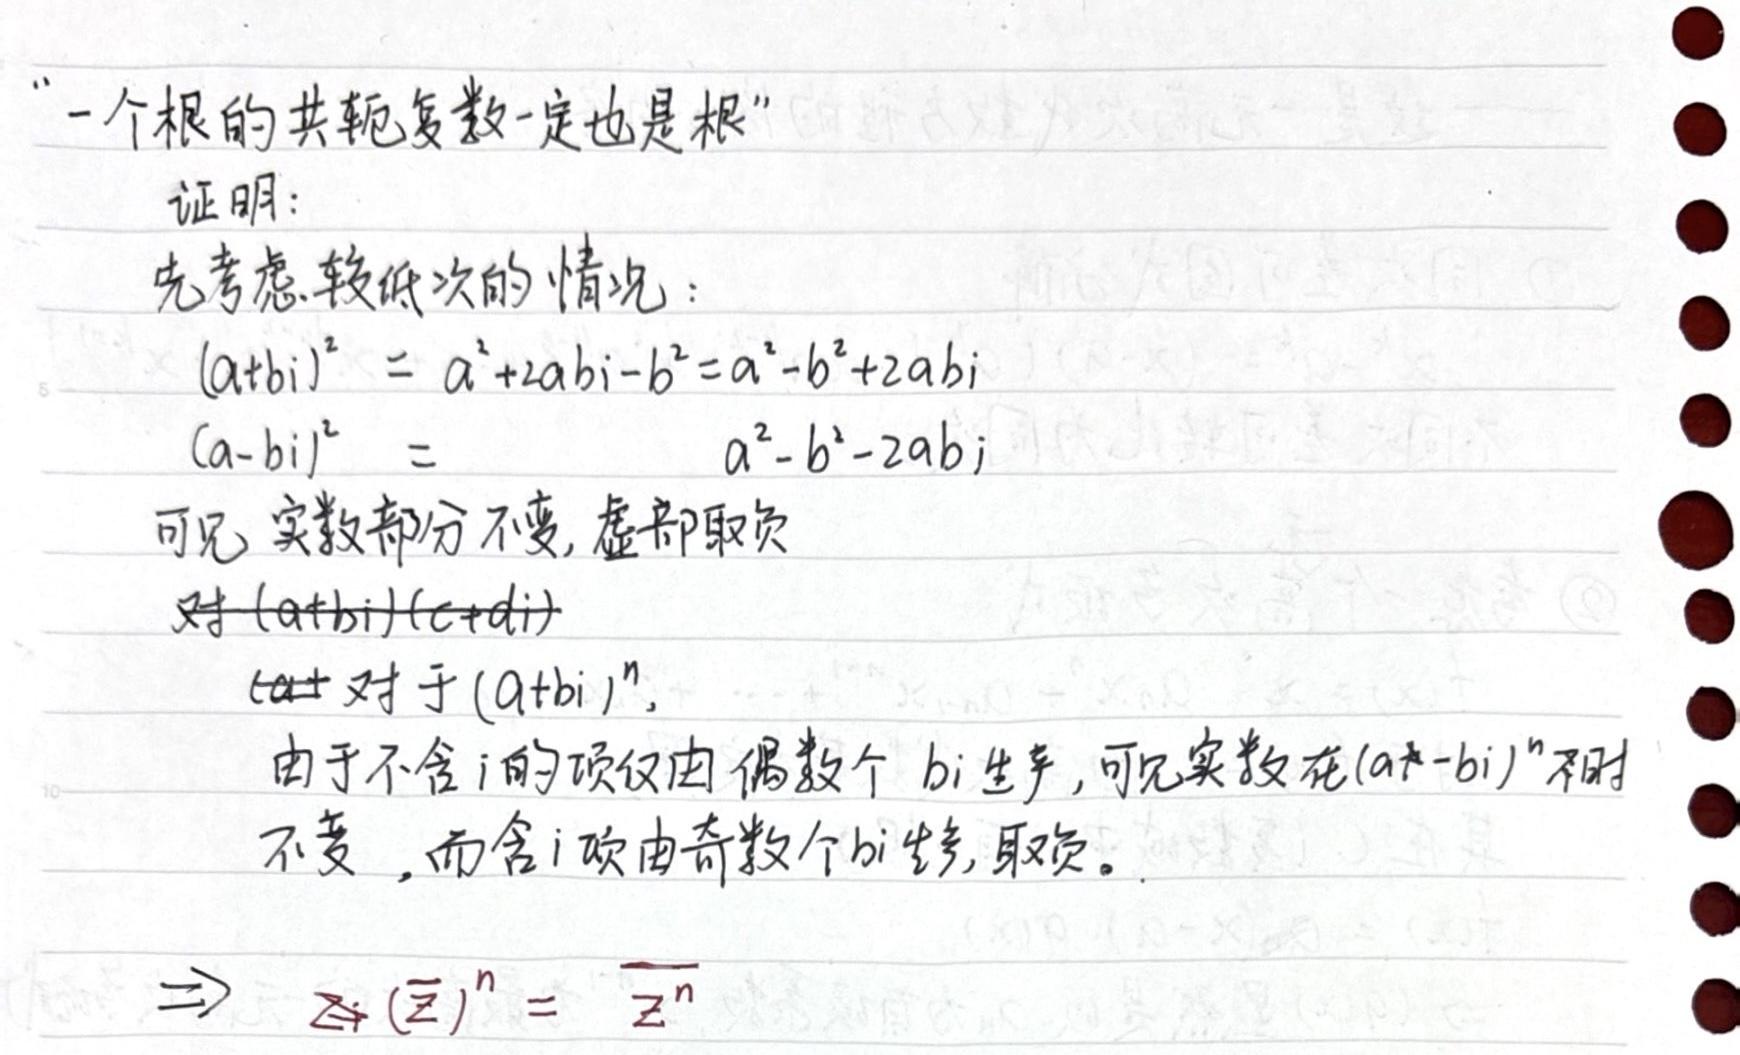 “一个根的共轭复数一定也是根”
证明：
先考虑较低次的情况：
(a+bi)² = a²+2abi-b²=a²-b²+2abi
(a-bi)² = a²-b²-2abi
可见 实数部分不变，虚部取负
对(a+bi)(c+di)
(a+ 对于(a+bi)ⁿ，
由于不含i的项仅由偶数个 bi生产，可见实数在(a-bi)ⁿ时
不变，而含i项由奇数个bi生产，取负。
⇒ (z̄)ⁿ = \overline{zⁿ}